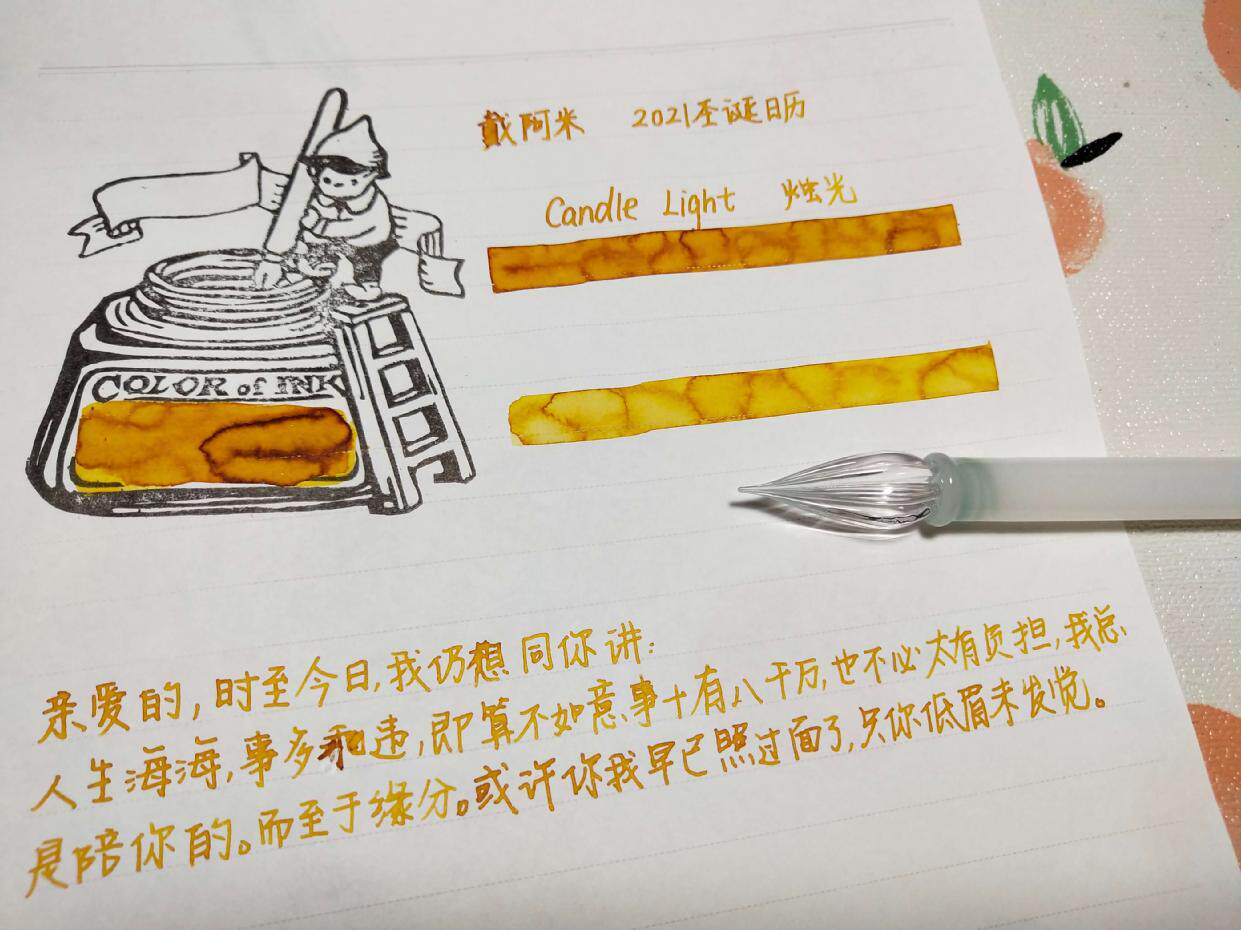 戴阿米 2021圣诞日历
Candle Light 烛光
COLOR of INK
亲爱的,时至今日,我仍想同你讲:
人生海海,事多乖违,即算不如意事十有八千万,也不必太有负担,我总
是陪你的。而至于缘分。或许你我早已照过面了,只你低眉未发觉。